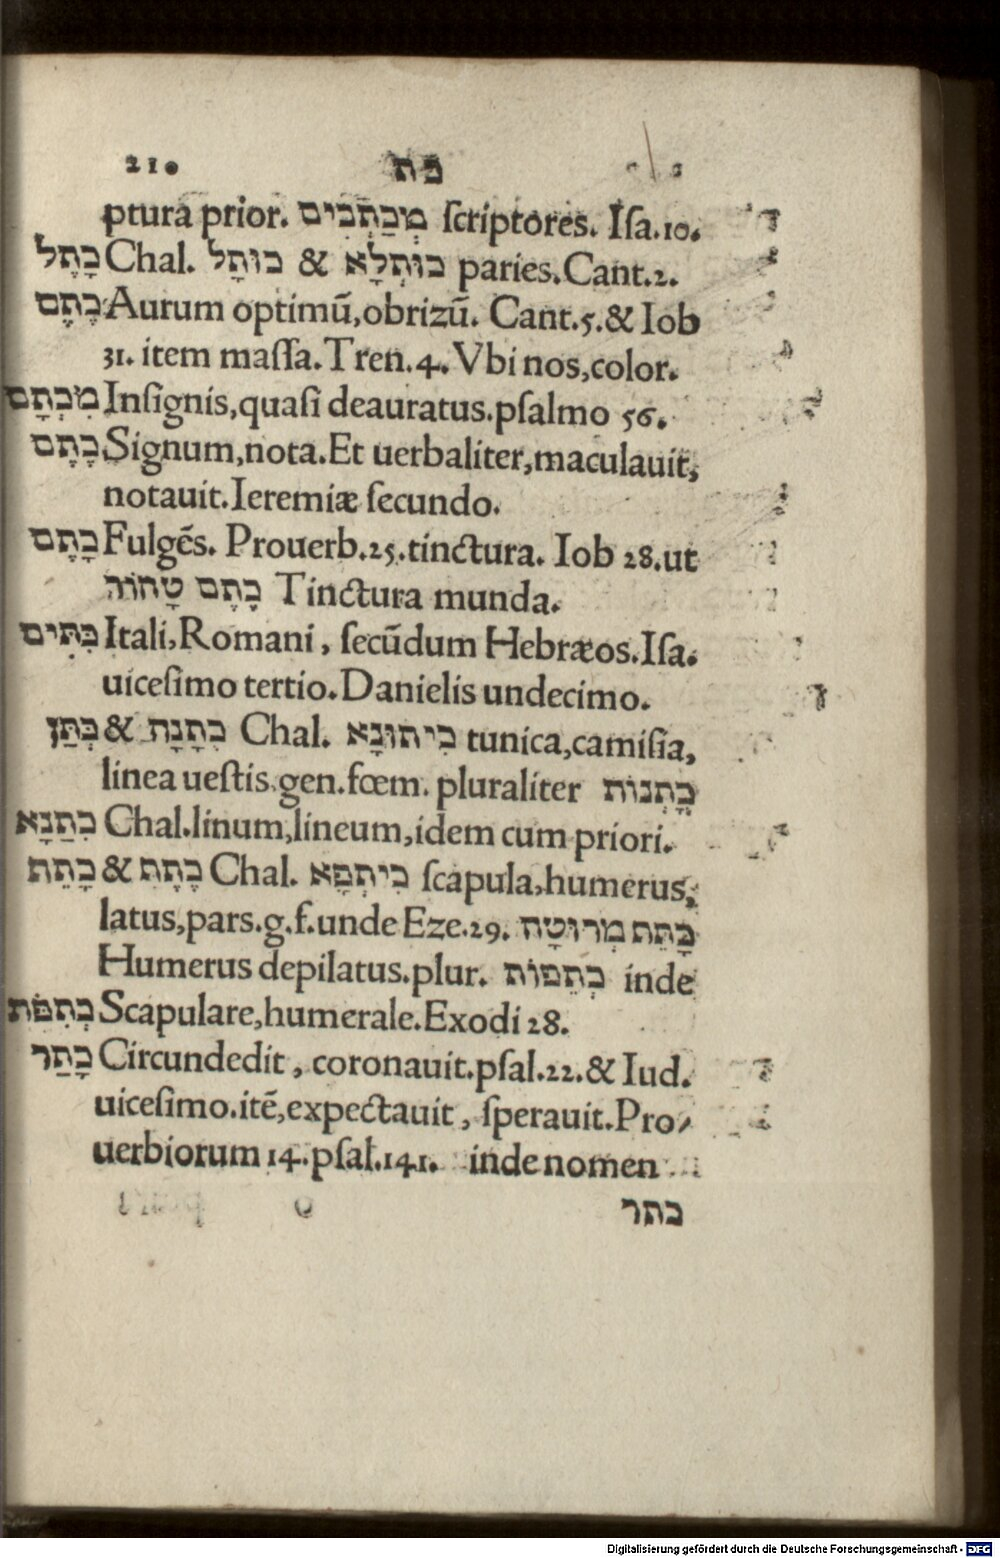 210 כת
ptura prior. מְכַתְּבִים ſcriptores. Iſa.10.
כָּתֶל Chal. כּוּתְלָא & כּוּתָל paries. Cant.2.
כֶּתֶם Aurum optimũ, obrizũ. Cant.5.& Iob
31. item maſſa. Tren.4. Vbi nos, color.
מִכְתָּם Inſignis, quaſi deauratus. pſalmo 56.
כֶּתֶם Signum, nota. Et uerbaliter, maculauit,
notauit. Ieremiæ ſecundo.
כָּתֶם Fulgẽs. Prouerb.25. tinctura. Iob 28. ut
כֶּתֶם טָהוֹר Tinctura munda.
כִּתִּים Itali, Romani, ſecũdum Hebræos. Iſa.
uiceſimo tertio. Danielis undecimo.
כְּתַּן & כְתָנֶת Chal. כִּיתוּנָא tunica, camiſia,
linea ueſtis. gen. fœm. pluraliter כָּתְנוֹת
כִּתַנָא Chal. linum, lineum, idem cum priori.
כָּתֵת & כֶּתֶת Chal. כִּיתְפָא ſcapula, humerus,
latus, pars. g. f. unde Eze.29. כָּתֵת מְרוּטָה
Humerus depilatus. plur. כְּתֵפוֹת inde
כְּתִפֹת Scapulare, humerale. Exodi 28.
כָּתַר Circundedit, coronauit. pſal.22.& Iud.
uiceſimo. itẽ, expectauit, ſperauit. Pro/
uerbiorum 14. pſal.141. inde nomen
כתר
Digitalisierung gefördert durch die Deutsche Forschungsgemeinschaft - DFG